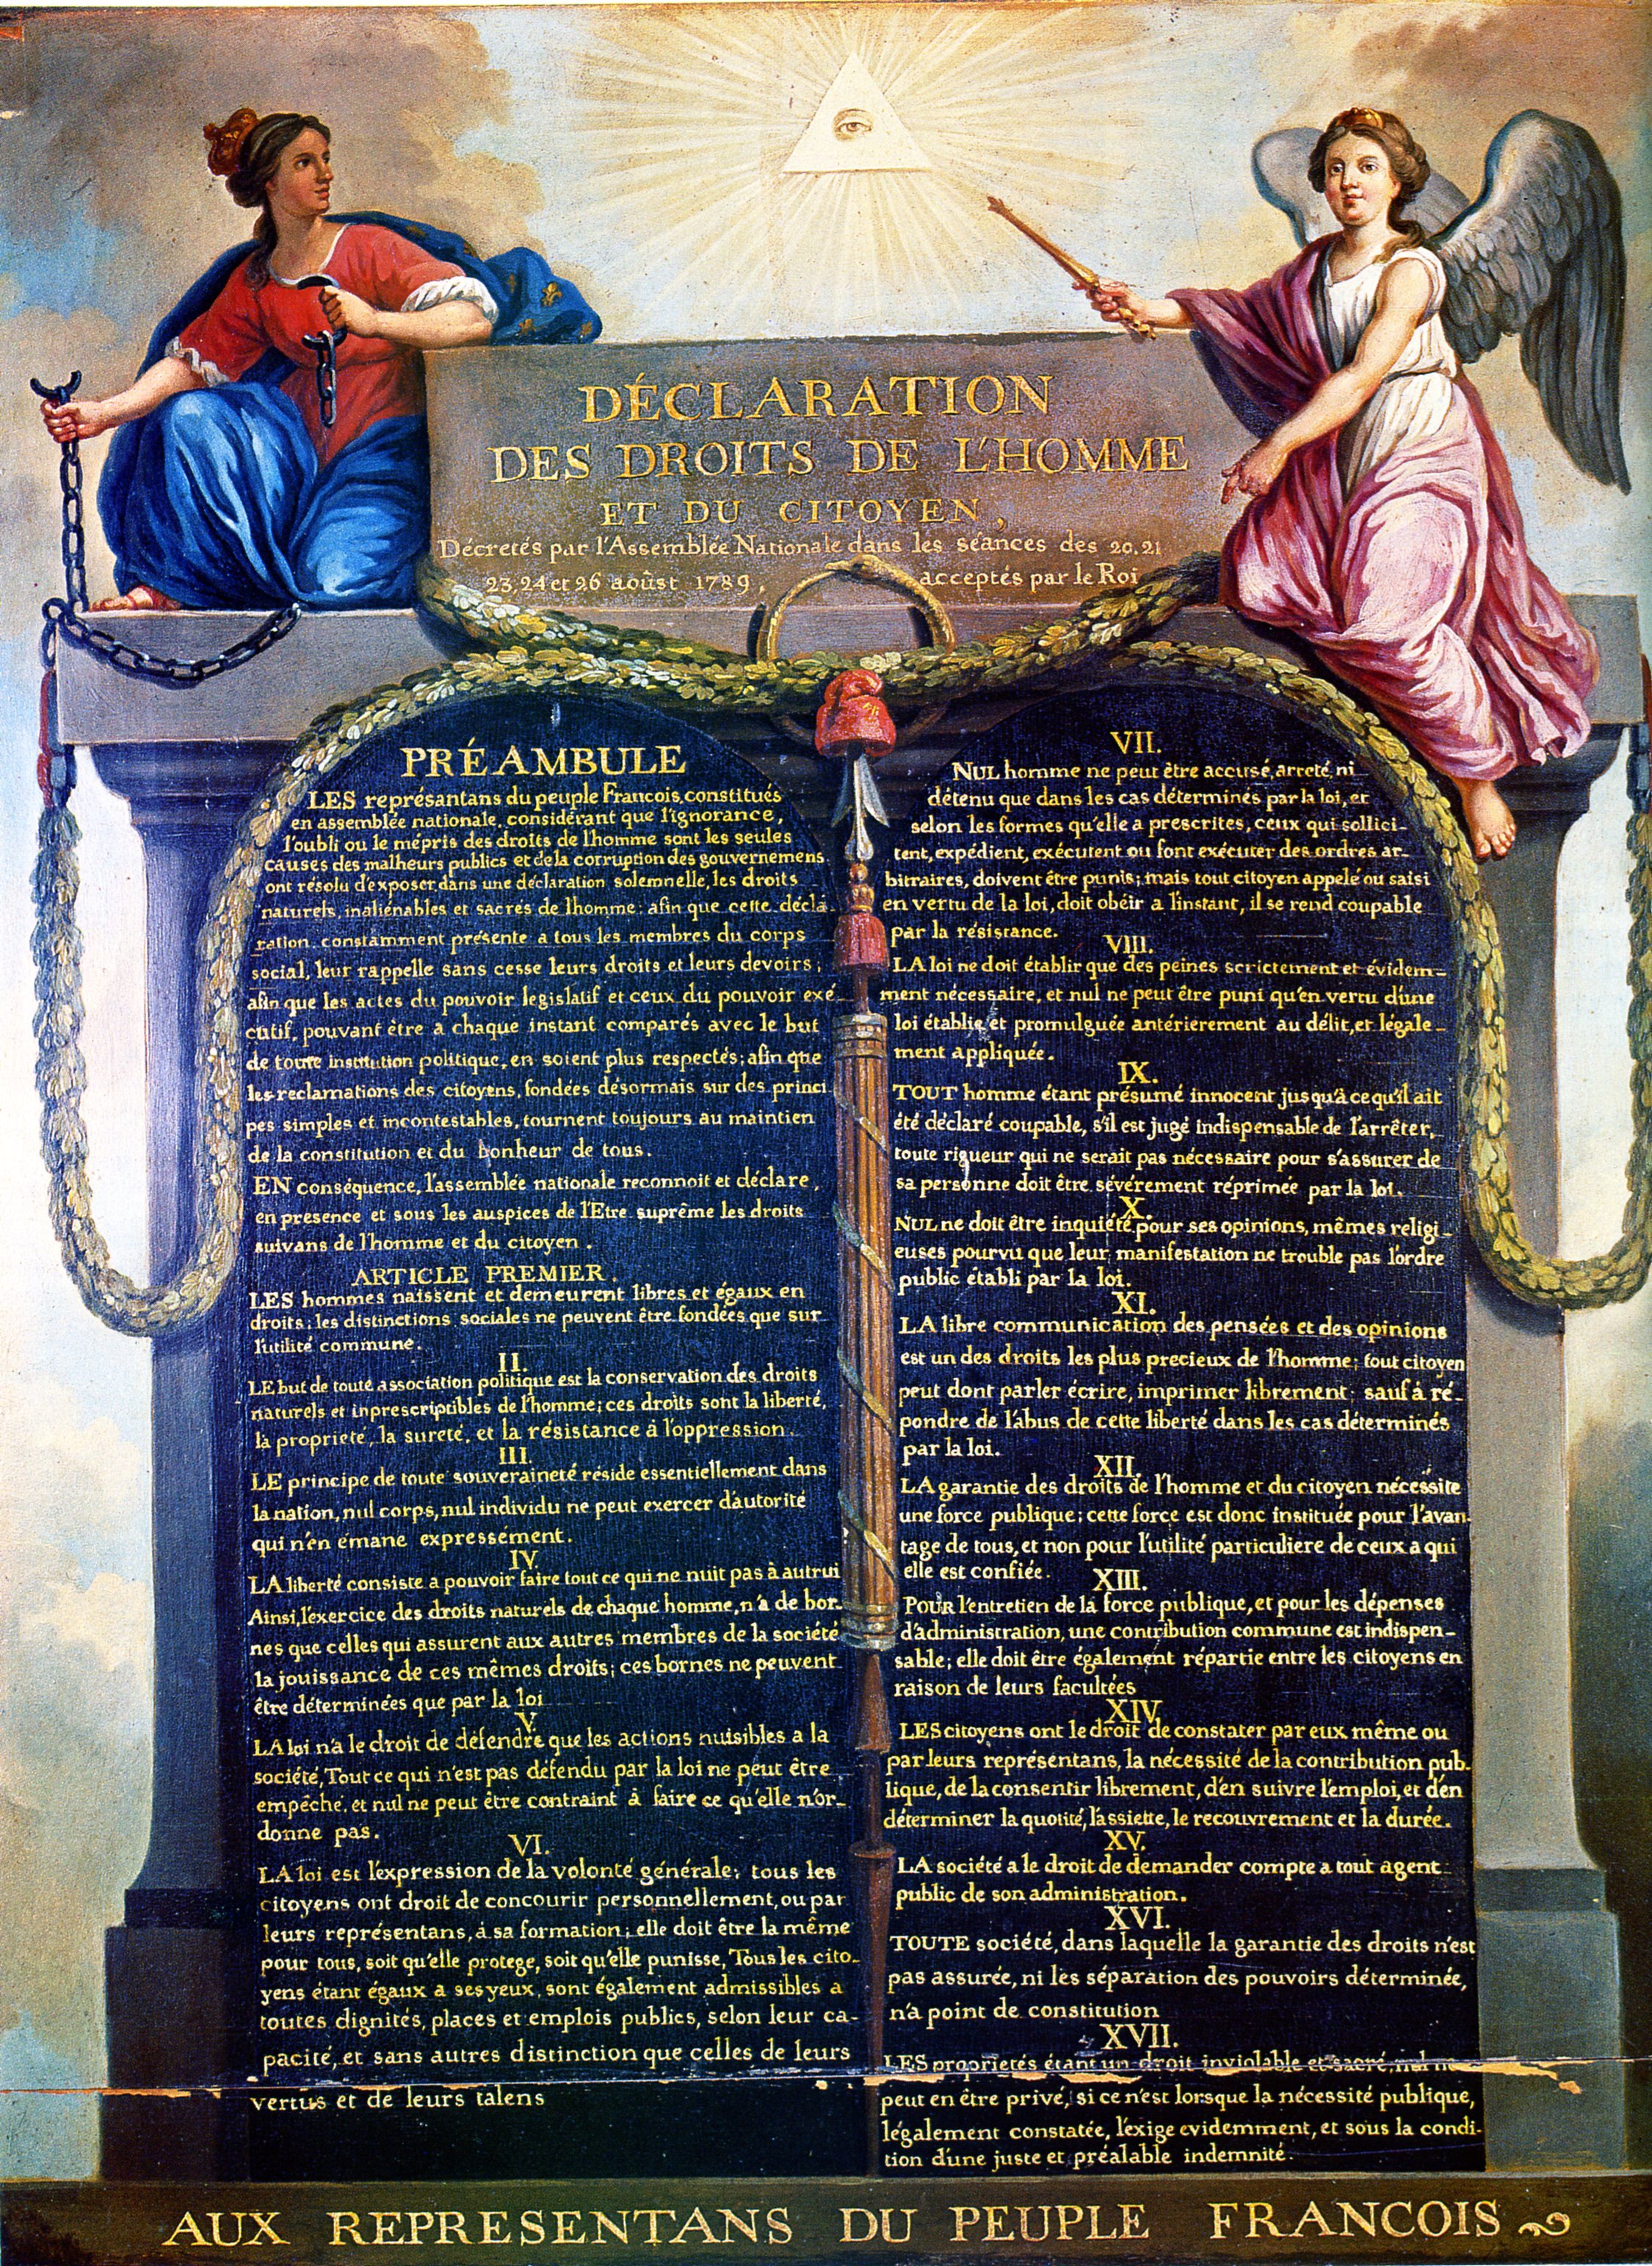 DÉCLARATION
DES DROITS DE L'HOMME
ET DU CITOYEN,
Décretés par l'Assemblée Nationale dans les séances des 20, 21
23, 24 et 26 aoûst 1789, acceptés par le Roi
PRÉAMBULE
LES représantans du peuple Francois, constitués
en assemblée nationale, considérant que l'ignorance,
l'oubli ou le mépris des droits de l'homme sont les seules
causes des malheurs publics et de la corruption des gouvernemens
ont résolu d'exposer, dans une déclaration solemnelle, les droits
naturels, inaliénables et sacrés de l'homme; afin que cette décla-
ration, constamment présente a tous les membres du corps
social, leur rappelle sans cesse leurs droits et leurs devoirs;
afin que les actes du pouvoir legislatif et ceux du pouvoir exé-
cutif, pouvant être a chaque instant comparés avec le but
de toute institution politique, en soient plus respectés; afin que
les reclamations des citoyens, fondées désormais sur des princi-
pes simples et incontestables, tournent toujours au maintien
de la constitution et du bonheur de tous.
EN conséquence, l'assemblée nationale reconnoit et déclare,
en presence et sous les auspices de l'Etre suprême les droits
suivans de l'homme et du citoyen.
ARTICLE PREMIER.
LES hommes naissent et demeurent libres et égaux en
droits; les distinctions sociales ne peuvent être fondées que sur
l'utilité commune.
II.
LE but de toute association politique est la conservation des droits
naturels et inprescriptibles de l'homme; ces droits sont la liberté,
la propriété, la sureté, et la résistance à l'oppression.
III.
LE principe de toute souveraineté réside essentiellement dans
la nation, nul corps, nul individu ne peut exercer d'autorité
qui n'en émane expressément.
IV.
LA liberté consiste a pouvoir faire tout ce qui ne nuit pas à autrui
Ainsi, l'exercice des droits naturels de chaque homme, n'a de bor-
nes que celles qui assurent aux autres membres de la société
la jouissance de ces mêmes droits; ces bornes ne peuvent
être déterminées que par la loi
V.
LA loi n'a le droit de défendre que les actions nuisibles a la
société, Tout ce qui n'est pas défendu par la loi ne peut être
empêché, et nul ne peut être contraint à faire ce qu'elle n'or-
donne pas.
VI.
LA loi est l'expression de la volonté générale; tous les
citoyens ont droit de concourir personnellement, ou par
leurs représentans, à sa formation; elle doit être la même
pour tous, soit qu'elle protege, soit qu'elle punisse, Tous les cito-
yens étant égaux a ses yeux, sont également admissibles a
toutes dignités, places et emplois publics, selon leur ca-
pacité, et sans autres distinction que celles de leurs
vertus et de leurs talens
VII.
NUL homme ne peut être accusé, arreté, ni
détenu que dans les cas déterminés par la loi, et
selon les formes qu'elle a prescrites, ceux qui sollici-
tent, expédient, exécutent ou font exécuter des ordres ar-
bitraires, doivent être punis; mais tout citoyen appelé ou saisi
en vertu de la loi, doit obéir a l'instant, il se rend coupable
par la résistance.
VIII.
LA loi ne doit établir que des peines strictement et évidem-
ment nécessaire, et nul ne peut être puni qu'en vertu d'une
loi établie et promulguée antérierement au délit, et légale-
ment appliquée.
IX.
TOUT homme étant présumé innocent jusqu'à ce qu'il ait
été déclaré coupable, s'il est jugé indispensable de l'arrêter,
toute rigueur qui ne serait pas nécessaire pour s'assurer de
sa personne doit être sévèrement réprimée par la loi.
X.
NUL ne doit être inquiété pour ses opinions, mêmes religi-
euses pourvu que leur manifestation ne trouble pas l'ordre
public établi par la loi.
XI.
LA libre communication des pensées et des opinions
est un des droits les plus precieux de l'homme; tout citoyen
peut dont parler écrire, imprimer librement; sauf à ré-
pondre de l'abus de cette liberté dans les cas déterminés
par la loi.
XII.
LA garantie des droits de l'homme et du citoyen nécessite
une force publique; cette force est donc instituée pour l'avan-
tage de tous, et non pour l'utilité particuliere de ceux a qui
elle est confiée.
XIII.
POUR l'entretien de la force publique, et pour les dépenses
d'administration, une contribution commune est indispen-
sable; elle doit être également répartie entre les citoyens en
raison de leurs facultées
XIV.
LES citoyens ont le droit de constater par eux même ou
par leurs représentans, la nécessité de la contribution pub-
lique, de la consentir librement, d'en suivre l'emploi, et d'en
déterminer la quotité, l'assiette, le recouvrement et la durée.
XV.
LA société a le droit de demander compte a tout agent
public de son administration.
XVI.
TOUTE société, dans laquelle la garantie des droits n'est
pas assurée, ni les séparation des pouvoirs déterminée,
n'a point de constitution
XVII.
LES proprietés étant un droit inviolable et sacré, nul ne
peut en être privé, si ce n'est lorsque la nécessité publique,
légalement constatée, l'exige evidemment, et sous la condi-
tion d'une juste et préalable indemnité.
AUX REPRESENTANS DU PEUPLE FRANCOIS